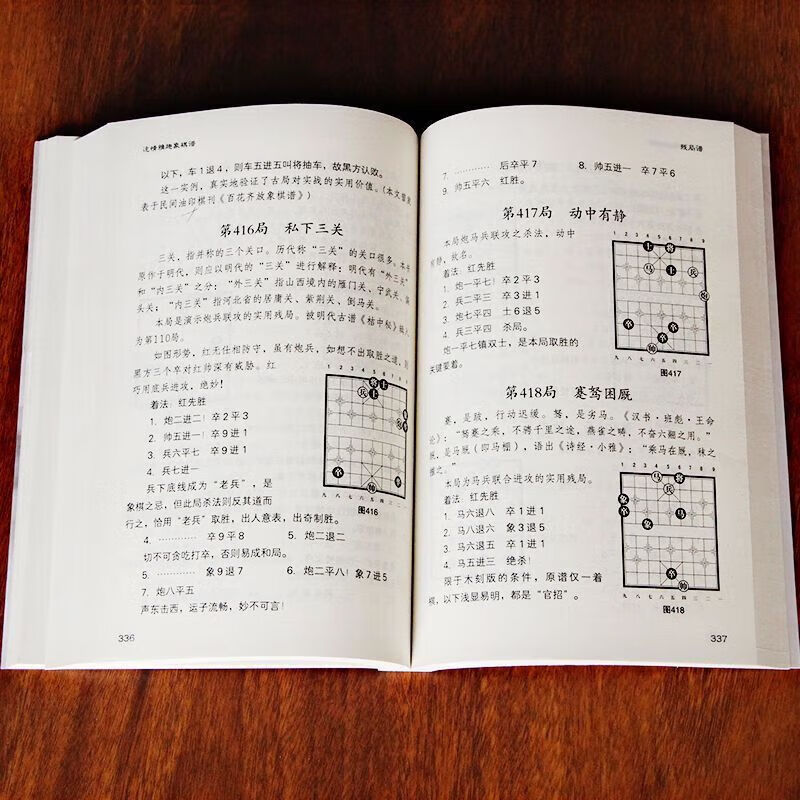 连情雅趣象棋谱
以下，车1退4，则车五进五叫将抽车，故黑方认败。
这一实例，真实地验证了古局对实战的实用价值。（本文曾发
表于民间油印棋刊《百花齐放象棋谱》）
第416局 私下三关
三关，指并称的三个关口。历代称“三关”的关口很多。本
原作于明代，则应以明代的“三关”进行解释：明代有“外三关”
和“内三关”之分：“外三关”指山西境内的雁门关、宁武关、偏
头关；“内三关”指河北省的居庸关、紫荆关、倒马关。
本局是演示炮兵联攻的实用残局。被明代古谱《桔中秘》
为第110局。
如图形势，红无仕相防守，虽有炮兵，如想不出取胜之道，则
黑方三个卒对红帅深有威胁。红
巧用底兵进攻，绝妙！
着法：红先胜
1. 炮二进二！ 卒2平3
2. 帅五进一！ 卒9进1
3. 兵六平七 卒9进1
4. 兵七进一
兵下底线成为“老兵”，是
象棋之忌，但此局杀法则反其道而
行之，恰用“老兵”取胜，出人意表，出奇制胜。
1 2 3 4 5 6 7 8
士 将
兵 士
炮
卒 卒
帅
九 八 七 六 五 四 三 二 一
图416
4. ………… 卒9平8 5. 炮二退二
切不可贪吃打卒，否则易成和局。
5. ………… 象9退7 6. 炮二平八！ 象7进5
7. 炮八平五
声东击西，运子流畅，妙不可言！
336
残局谱
7. ………… 后卒平7 8. 帅五进一 卒7平6
9. 帅五平六 红胜。
第417局 动中有静
本局炮马兵联攻之杀法，动中
有静，故名。
着法：红先胜
1. 炮一平七！ 卒2平3
2. 兵二平三 卒3进1
3. 炮七平四 士6退5
4. 兵三平四 杀局。
炮一平七镇双士，是本局取胜的
关键要着。
1 2 3 4 5 6 7 8 9
士 将
马 士 兵
炮
卒 卒
帅
九 八 七 六 五 四 三 二 一
图417
第418局 蹇驽困厩
蹇，是跛，行动迟缓。驽，是劣马。《汉书·班彪·王命
论》：“驽蹇之乘，不骋千里之途，燕雀之畴，不奋六翮之用。”
厩，是马厩（即马棚），语出《诗经·小雅》：“乘马在厩，秣之
摧之。”
本局为马兵联合进攻的实用残局。
着法：红先胜
1. 马六退八 卒1平2
2. 马八退六 象3退5
3. 马六退五 卒1进1
4. 马五进三 绝杀！
限于木刻版的条件，原谱仅一着
棋，以下浅显易明，都是“官招”。
1 2 3 4 5 6 7 8 9
马 将
兵
象
卒 马
象
卒
帅
九 八 七 六 五 四 三 二 一
图418
337